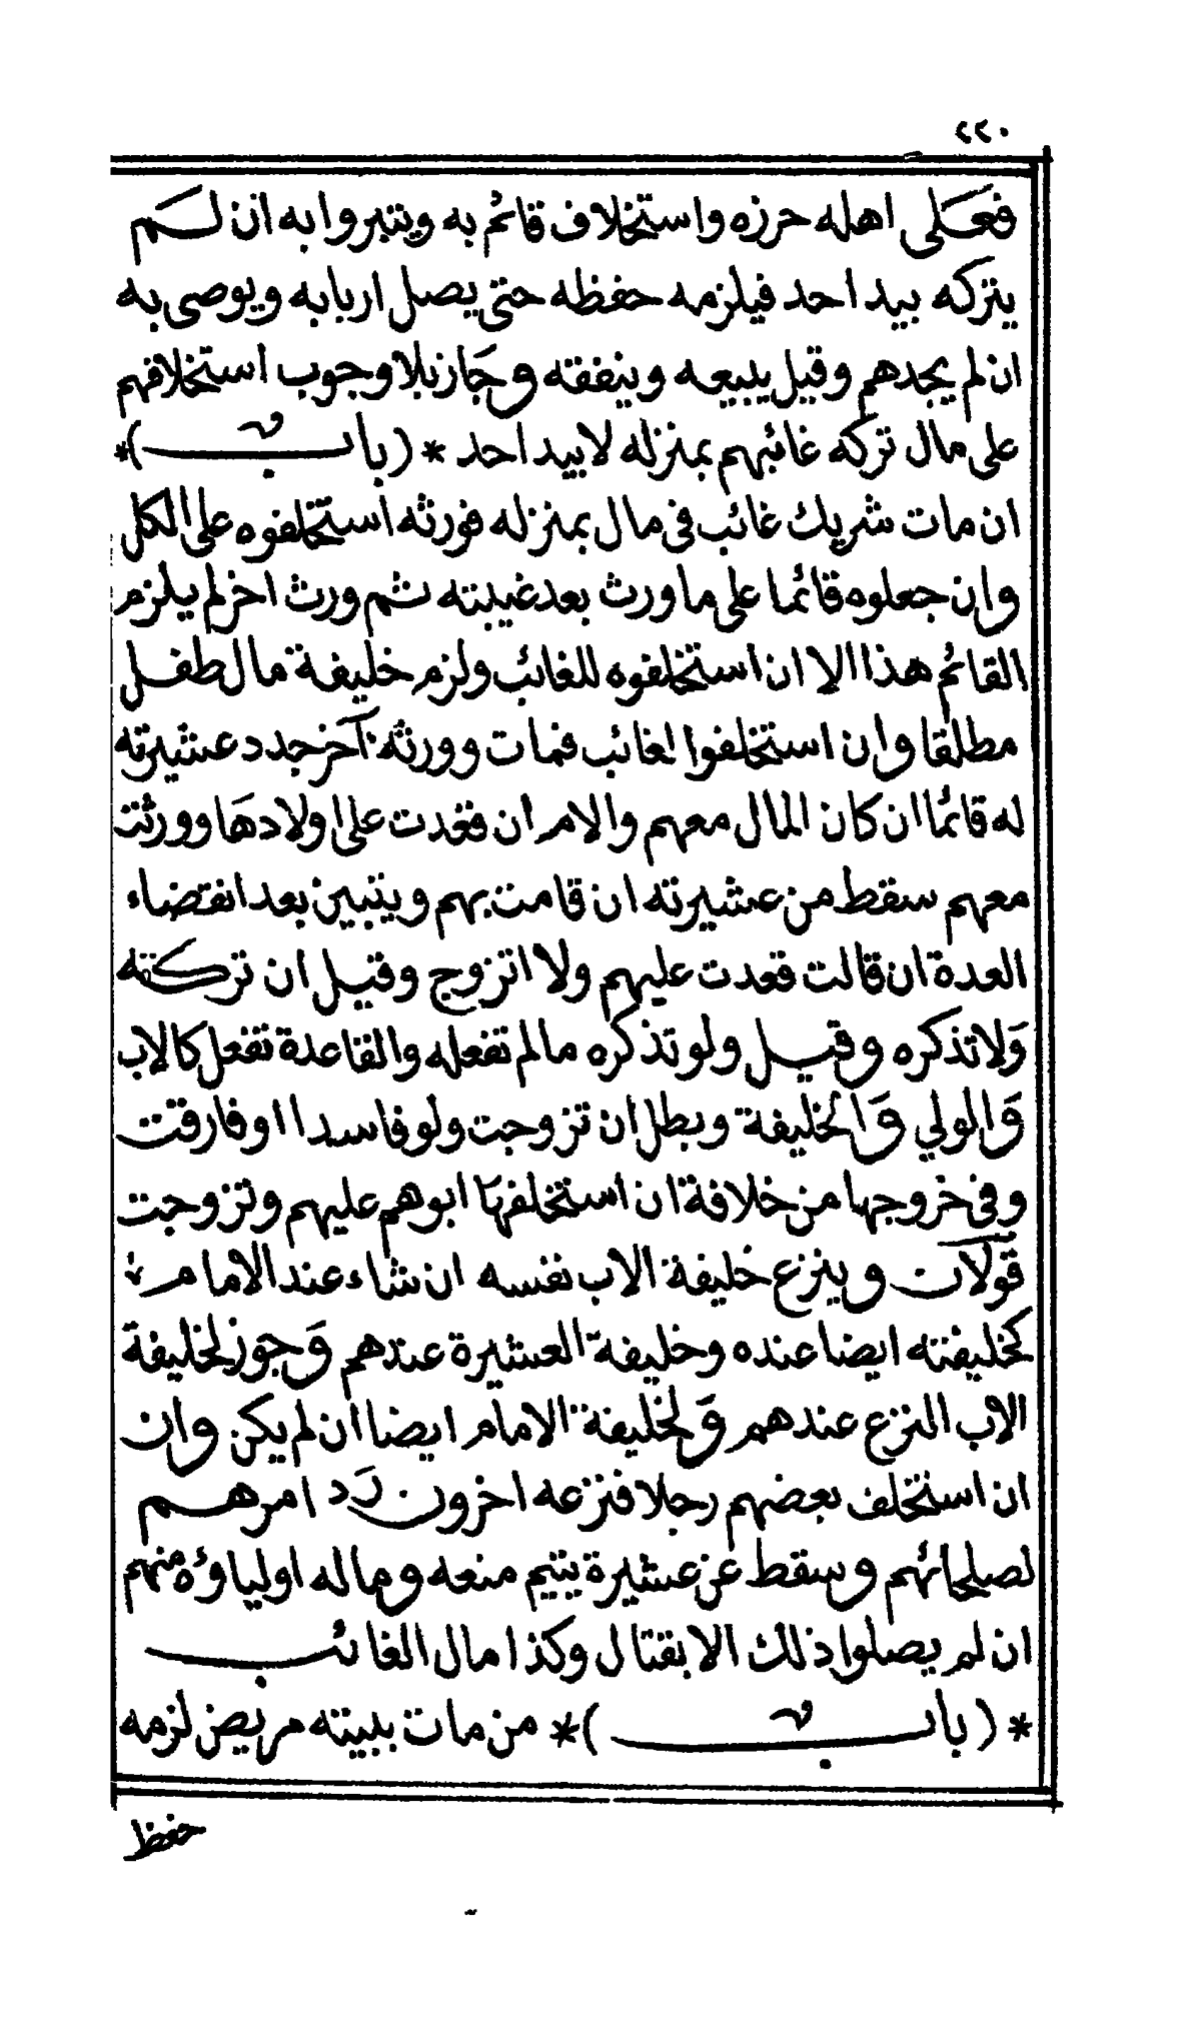 ٢٢٠
فعلى اهله حرزه واستخلاف قائم به ويتبروا به ان لم
يتركه بيد احد فيلزمه حفظه حتى يصل اربابه ويوصى به
ان لم يجدهم وقيل يبيعه وينفقه وجاز بلا وجوب استخلافهم
على مال تركه غائبهم بمنزله لا بيد احد * (باب) *
ان مات شريك غائب فى مال بمنزله فورثه استخلفوه على الكل
وان جعلوه قائما على ما ورث بعد غيبته ثم ورث اخر لم يلزم
القائم هذا الا ان استخلفوه للغائب ولزم خليفة مال طفل
مطلقا وان استخلفوا لغائب فمات وورثه آخر جدد عشيرته
له قائما ان كان المال معهم والام ان قعدت على اولادها وورثت
معهم سقط من عشيرته ان قامت بهم ويتبين بعد انقضاء
العدة ان قالت قعدت عليهم ولا اتزوج وقيل ان تركته
ولا تذكره وقيل ولو تذكره مالم تفعله والقاعدة تفعل كالاب
والولي والخليفة وبطل ان تزوجت ولو فاسدا او فارقت
وفى خروجها من خلافة ان استخلفها ابوهم عليهم وتزوجت
قولان وينزع خليفة الاب نفسه ان شاء عند الامام
كخليفته ايضا عنده وخليفة العشيرة عندهم وجوز لخليفة
الاب النزع عندهم ولخليفة الامام ايضا ان لم يكن وان
ان استخلف بعضهم رجلا فنزعه اخرون رد امرهم
لصلحائهم وسقط عن عشيرة يتيم منعه وماله اولياؤه منهم
ان لم يصلوا ذلك الا بقتال وكذا مال الغائب
* (باب) * من مات ببيته مريض لزمه
حفظ